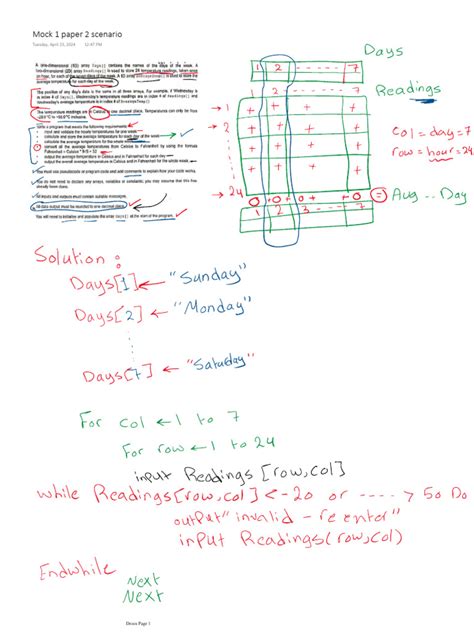 Mock 1 paper 2 scenario
Tuesday, April 23, 2024 12:47 PM
A one-dimensional (1D) array Days[] contains the names of the days of the week. A
two-dimensional (2D) array Readings[] is used to store 24 temperature readings, taken once
an hour, for each of the seven days of the week. A 1D array is used to store the
average temperature for each day of the week.
The position of any day's data is the same in all three arrays. For example, if Wednesday is
in index 4 of Days[], Wednesday's temperature readings are in index 4 of Readings[] and
Wednesday's average temperature is in index 4 of
The temperature readings are in Celsius to one decimal place. Temperatures can only be from
inclusive.
Write a program that meets the following requirements:
input and validate the hourly temperatures for one week
calculate and store the average temperature for each day of the week
calculate the average temperature for the whole week
convert all the average temperatures from Celsius to Fahrenheit by using the formula
Fahrenheit = Celsius * 9/5 + 32
output the average temperature in Celsius and in Fahrenheit for each day
output the average temperature in Celsius and in Fahrenheit for the whole week.
You must use pseudocode or program code and add comments to explain how your code works.
You do not need to declare any arrays, variables or constants; you may assume that this has
already been done.
All inputs and outputs must contain suitable messages.
All data output must be rounded to one decimal place.
You will need to initialise and populate the array Days[] at the start of the program.
Days
1 2 ------ 7
2 ------ 7
Readings
1
2
24
col = day = 7
row = hour = 24
= Avg .. Day
1 2 3 ------ 7
Solution :
Days[1] ← "Sunday"
Days[2] ← "Monday"
Days[7] ← "Saturday"
For col ← 1 to 7
For row ← 1 to 24
input Readings [row,col]
while Readings[row,col] < -20 or ---- > 50 Do
output "invalid - re enter"
input Readings(row,col)
Endwhile
Next
Next
Draws Page 1